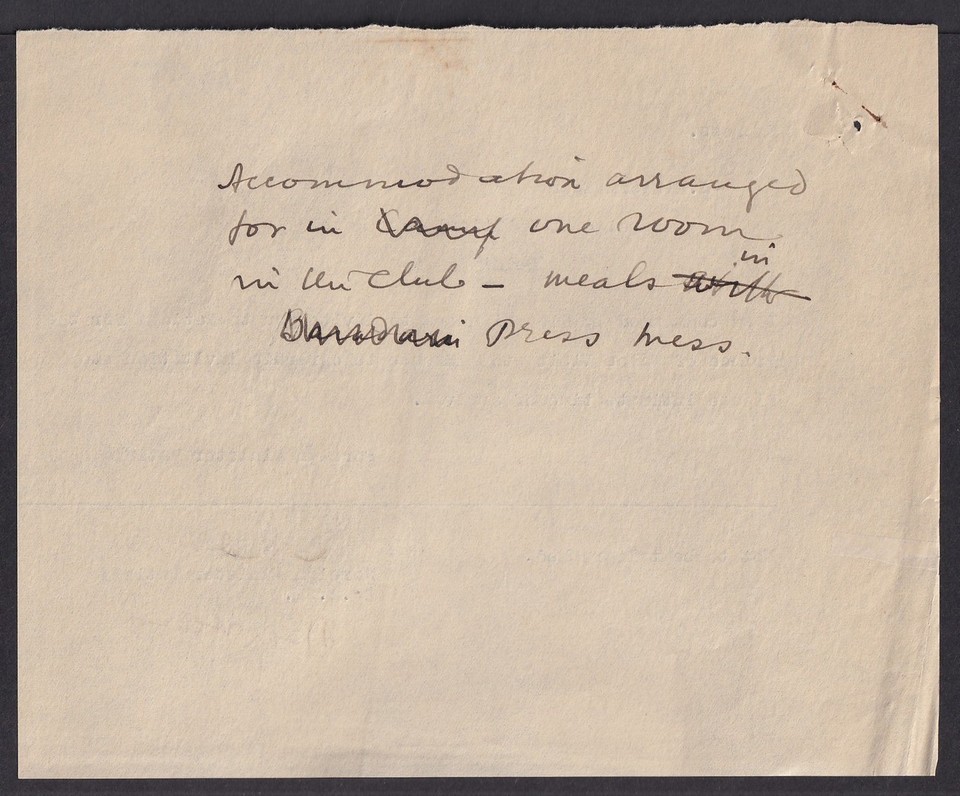 Accommodation arranged
for in Camp one room
in the Club – meals with in
Press mess.